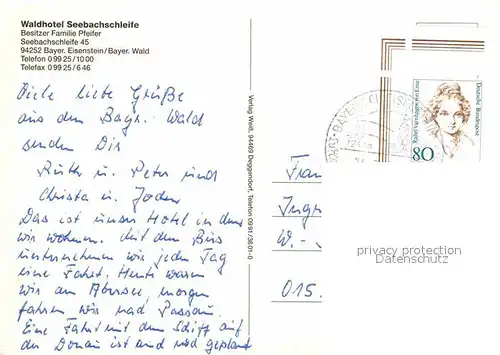 Waldhotel Seebachschleife
Besitzer Familie Pfeifer
Seebachschleife 45
94252 Bayer. Eisenstein/Bayer. Wald
Telefon 0 99 25 / 10 00
Telefax 0 99 25 / 6 46
Viele liebe Grüße
aus dem Bayr. Wald
senden Dir
Ruth u. Peter und
Christa u. Jochen
Das ist unser Hotel in dem
wir wohnen. Mit dem Bus
unternehmen wir jeden Tag
eine Fahrt. Heute waren
wir am Abersee, morgen
fahren wir nach Passau.
Eine Fahrt mit dem Schiff auf
der Donau ist auch noch geplant
Verlag Weiß, 94469 Deggendorf, Telefon 0991/3631-0
Deutsche Bundespost
Rahel Varnhagen von Ense
80
Frau
Ingr
W. -
privacy protection
Datenschutz
015.